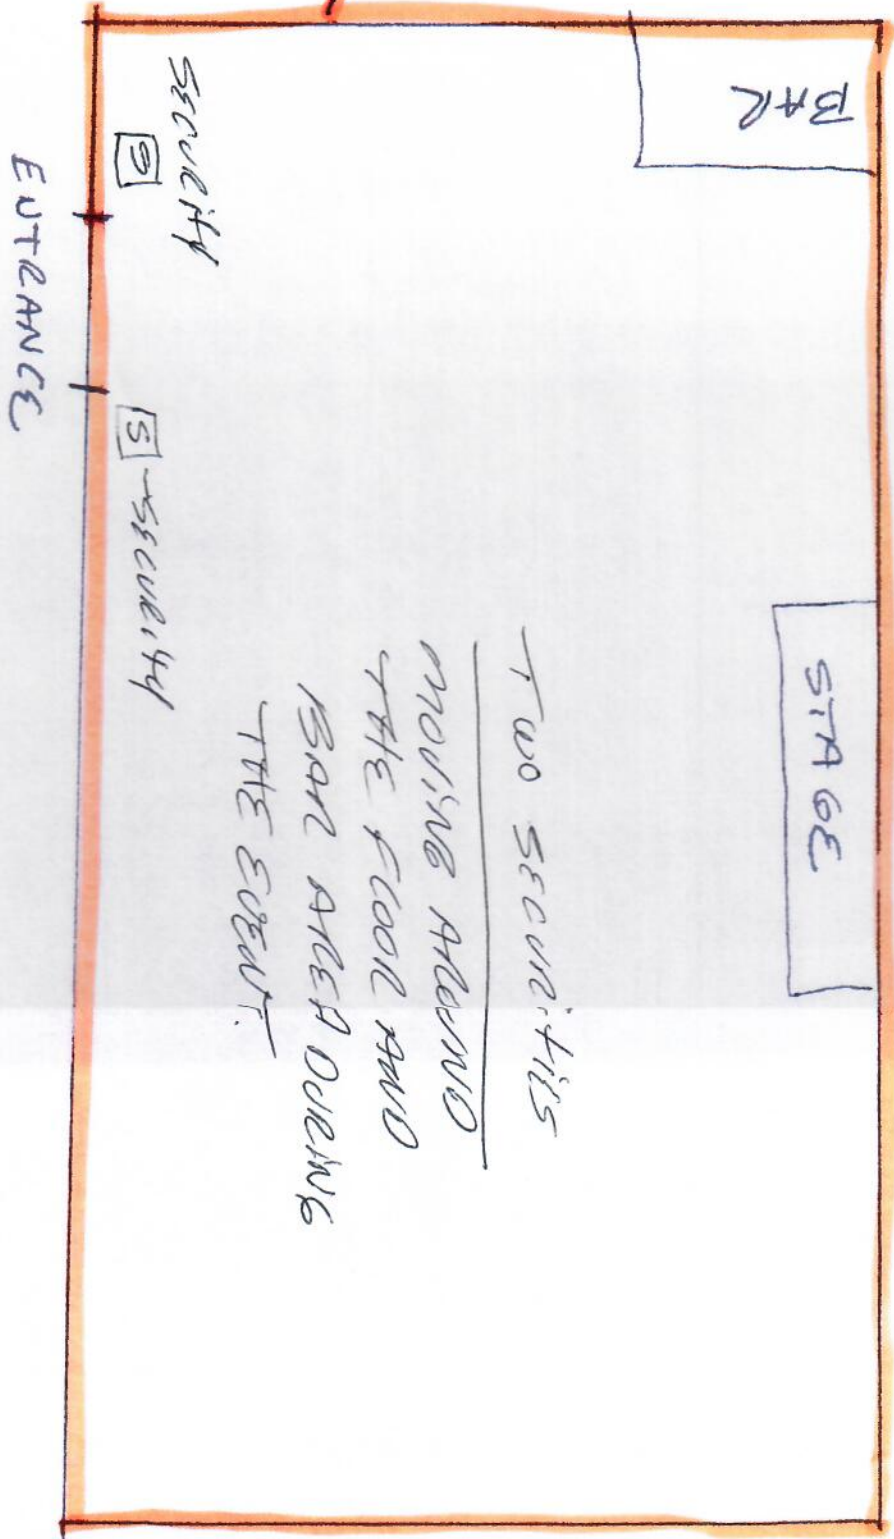 BAR
STAGE
TWO SECURITIES
MOVING AROUND
THE FLOOR AND
BAR AREA DURING
THE EVENT.
SECURITY
S
S - SECURITY
ENTRANCE